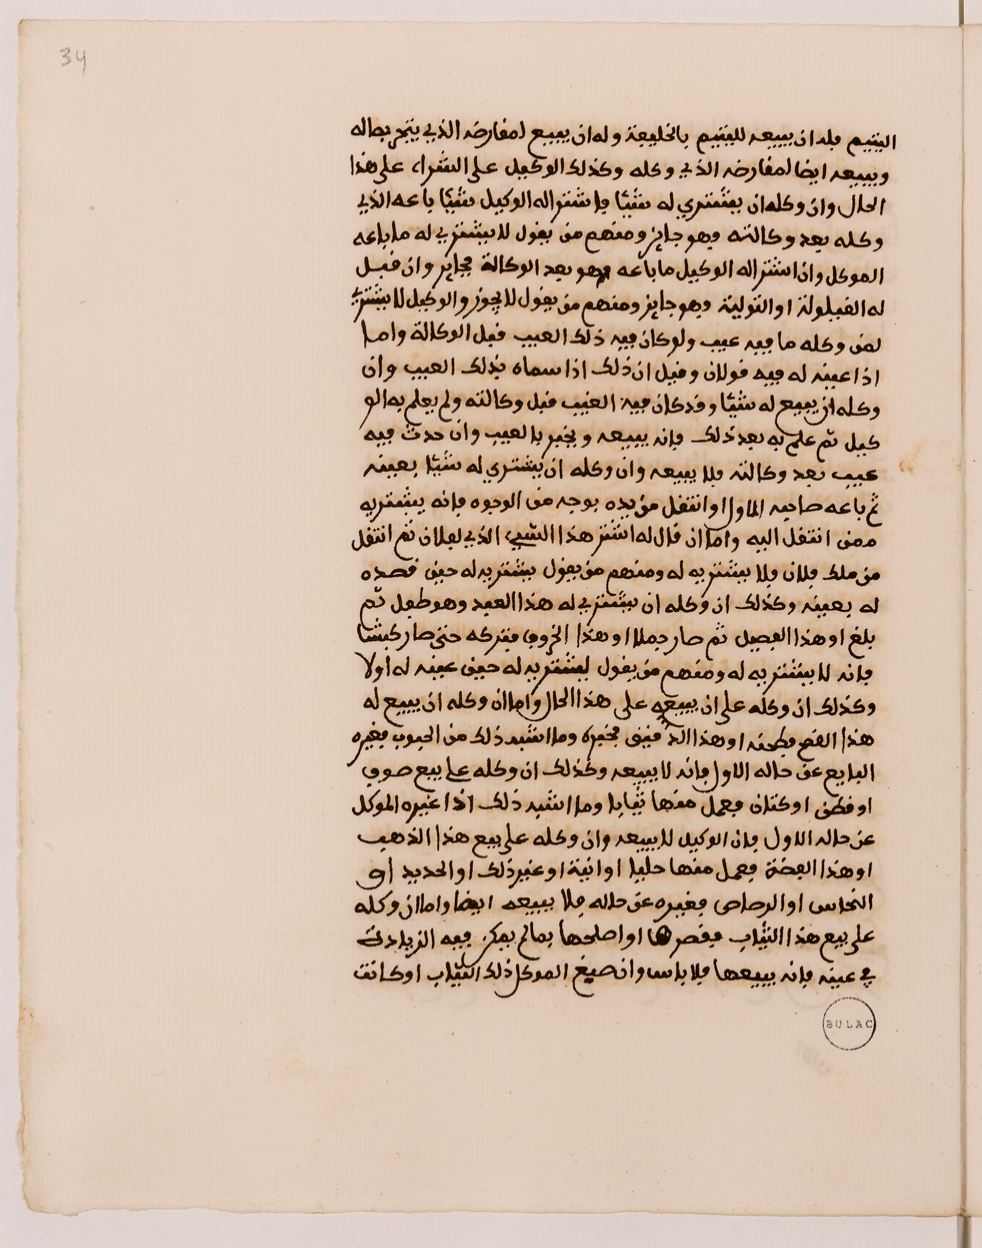 34
اليتيم فله ان يبيعه لليتيم بالخليفة وله ان يبيع لمقارضه الذي يتجر بماله
ويبيعه ايضا لمقارضه الذي وكله وكذلك الوكيل على الشراء على هذا
الحال وان وكله ان يشتري له شيئا فاشتراله الوكيل شيئا باعه الذي
وكله بعد وكالته فهو جايز ومنهم من يقول لا يشتري له ما باعه
الموكل وان اشتراله الوكيل ما باعه هو بعد الوكالة فجايز وان قبل
له القيلولة او التولية فهو جايز ومنهم من يقول لا يجوز والوكيل لا يشتري
لمن وكله ما فيه عيب ولو كان فيه ذلك العيب قبل الوكالة واما
اذا عينه له ففيه قولان وقيل ان ذلك اذا سماه بذلك العيب وان
وكله ان يبيع له شيئا وقد كان فيه العيب قبل وكالته ولم يعلم به الو
كيل ثم علم به بعد ذلك فإنه يبيعه ويخبر بالعيب وان حدث فيه
عيب بعد وكالته فلا يبيعه وان وكله ان يشتري له شيئا بعينه
ثم باعه صاحبه الاول او انتقل من يده بوجه من الوجوه فإنه يشتريه
ممن انتقل اليه واما ان قال له اشتر هذا الشيء الذي لفلان ثم انتقل
من ملك فلان فلا يشتريه له ومنهم من يقول يشتريه له حين قصده
له بعينه وكذلك ان وكله ان يشتري له هذا العبد وهو طفل ثم
بلغ او هذا الفصيل ثم صار جملا او هذا الخروف فتركه حتى صار كبشا
فإنه لا يشتريه له ومنهم من يقول يشتريه له حين عينه له اولا
وكذلك ان وكله على ان يبيعه على هذا الحال واما ان وكله ان يبيع له
هذا القمح فطحنه او هذا الدقيق فخبزه وما اشبه ذلك من الحبوب فغيره
البايع عن حاله الاول فإنه لا يبيعه وكذلك ان وكله على بيع صوف
او قطن او كتان فعمل منها ثيابا وما اشبه ذلك اذا غيره الموكل
عن حاله الاول فإن الوكيل لا يبيعه وان وكله على بيع هذا الذهب
او هذا الفضة فعمل منها حليا او انية او غير ذلك او الحديد او
النحاس او الرصاص فغيره عن حاله فلا يبيعه ايضا واما ان وكله
على بيع هذا الثياب فقصرها او اصلحها بمالم يكن فيه الزيادة
في عينه فإنه يبيعها فلا باس وان صبغ الموكل ذلك الثياب او كانت
BULAC